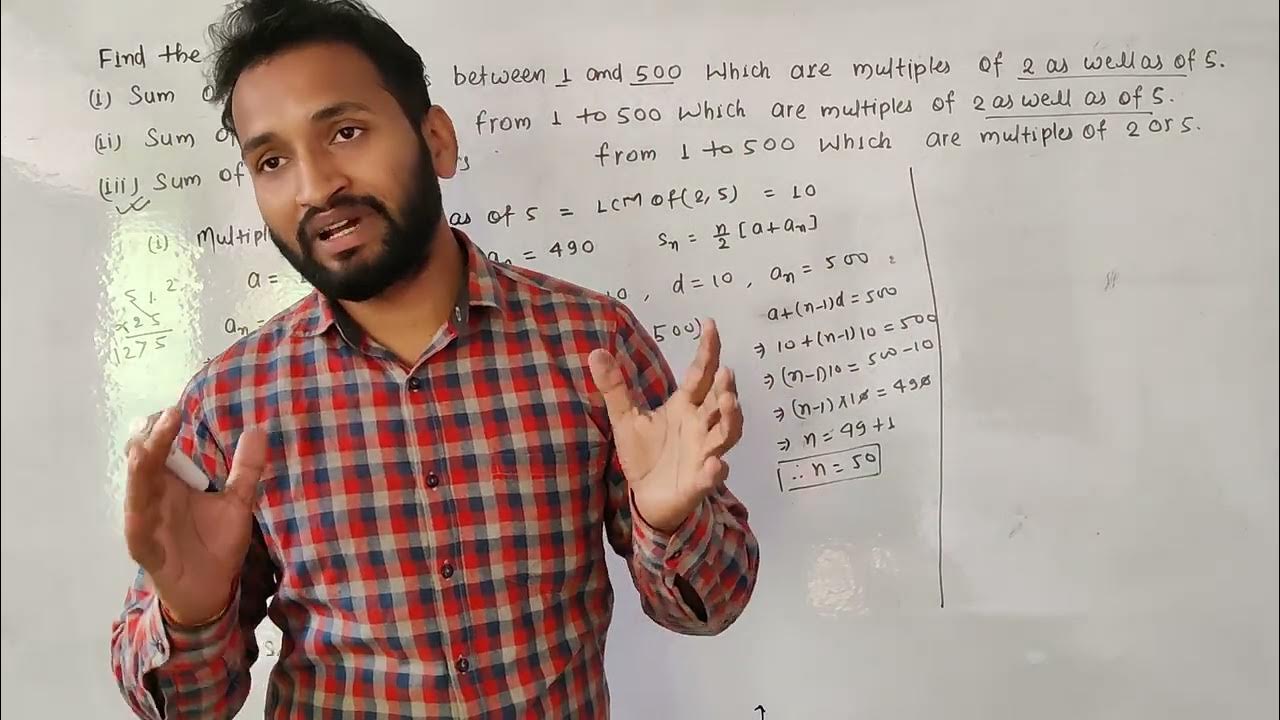 Find the
(i) Sum between 1 and 500 which are multiples of 2 as well as of 5.
(ii) Sum of from 1 to 500 which are multiples of 2 as well as of 5.
(iii) Sum of from 1 to 500 which are multiples of 2 or 5.
(i) as of 5 = LCM of (2, 5) = 10
a = aₙ = 490 Sₙ = n/2 [a + aₙ]
aₙ = 10, d = 10, aₙ = 500
500) a + (n-1)d = 500
⇒ 10 + (n-1)10 = 500
⇒ (n-1)10 = 500 - 10
⇒ (n-1) × 10 = 490
⇒ n = 49 + 1
∴ n = 50
51
×25
1275